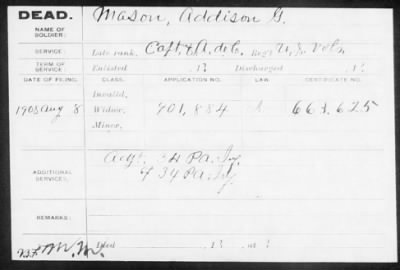 DEAD. Mason, Addison G.
NAME OF
SOLDIER:
SERVICE: Late rank, Capt & A. de C. Reg't U.S. Vols
TERM OF
SERVICE: Enlisted 18 Discharged 18
DATE OF FILING. CLASS. APPLICATION NO. LAW. CERTIFICATE NO.
Invalid,
1908 Aug 8 Widow, 901,884 663,625
Minor,
ADDITIONAL
SERVICES: Adgt. 34 Pa. Inf.
34 Pa. Inf.
REMARKS:
M.M. Died 18 at